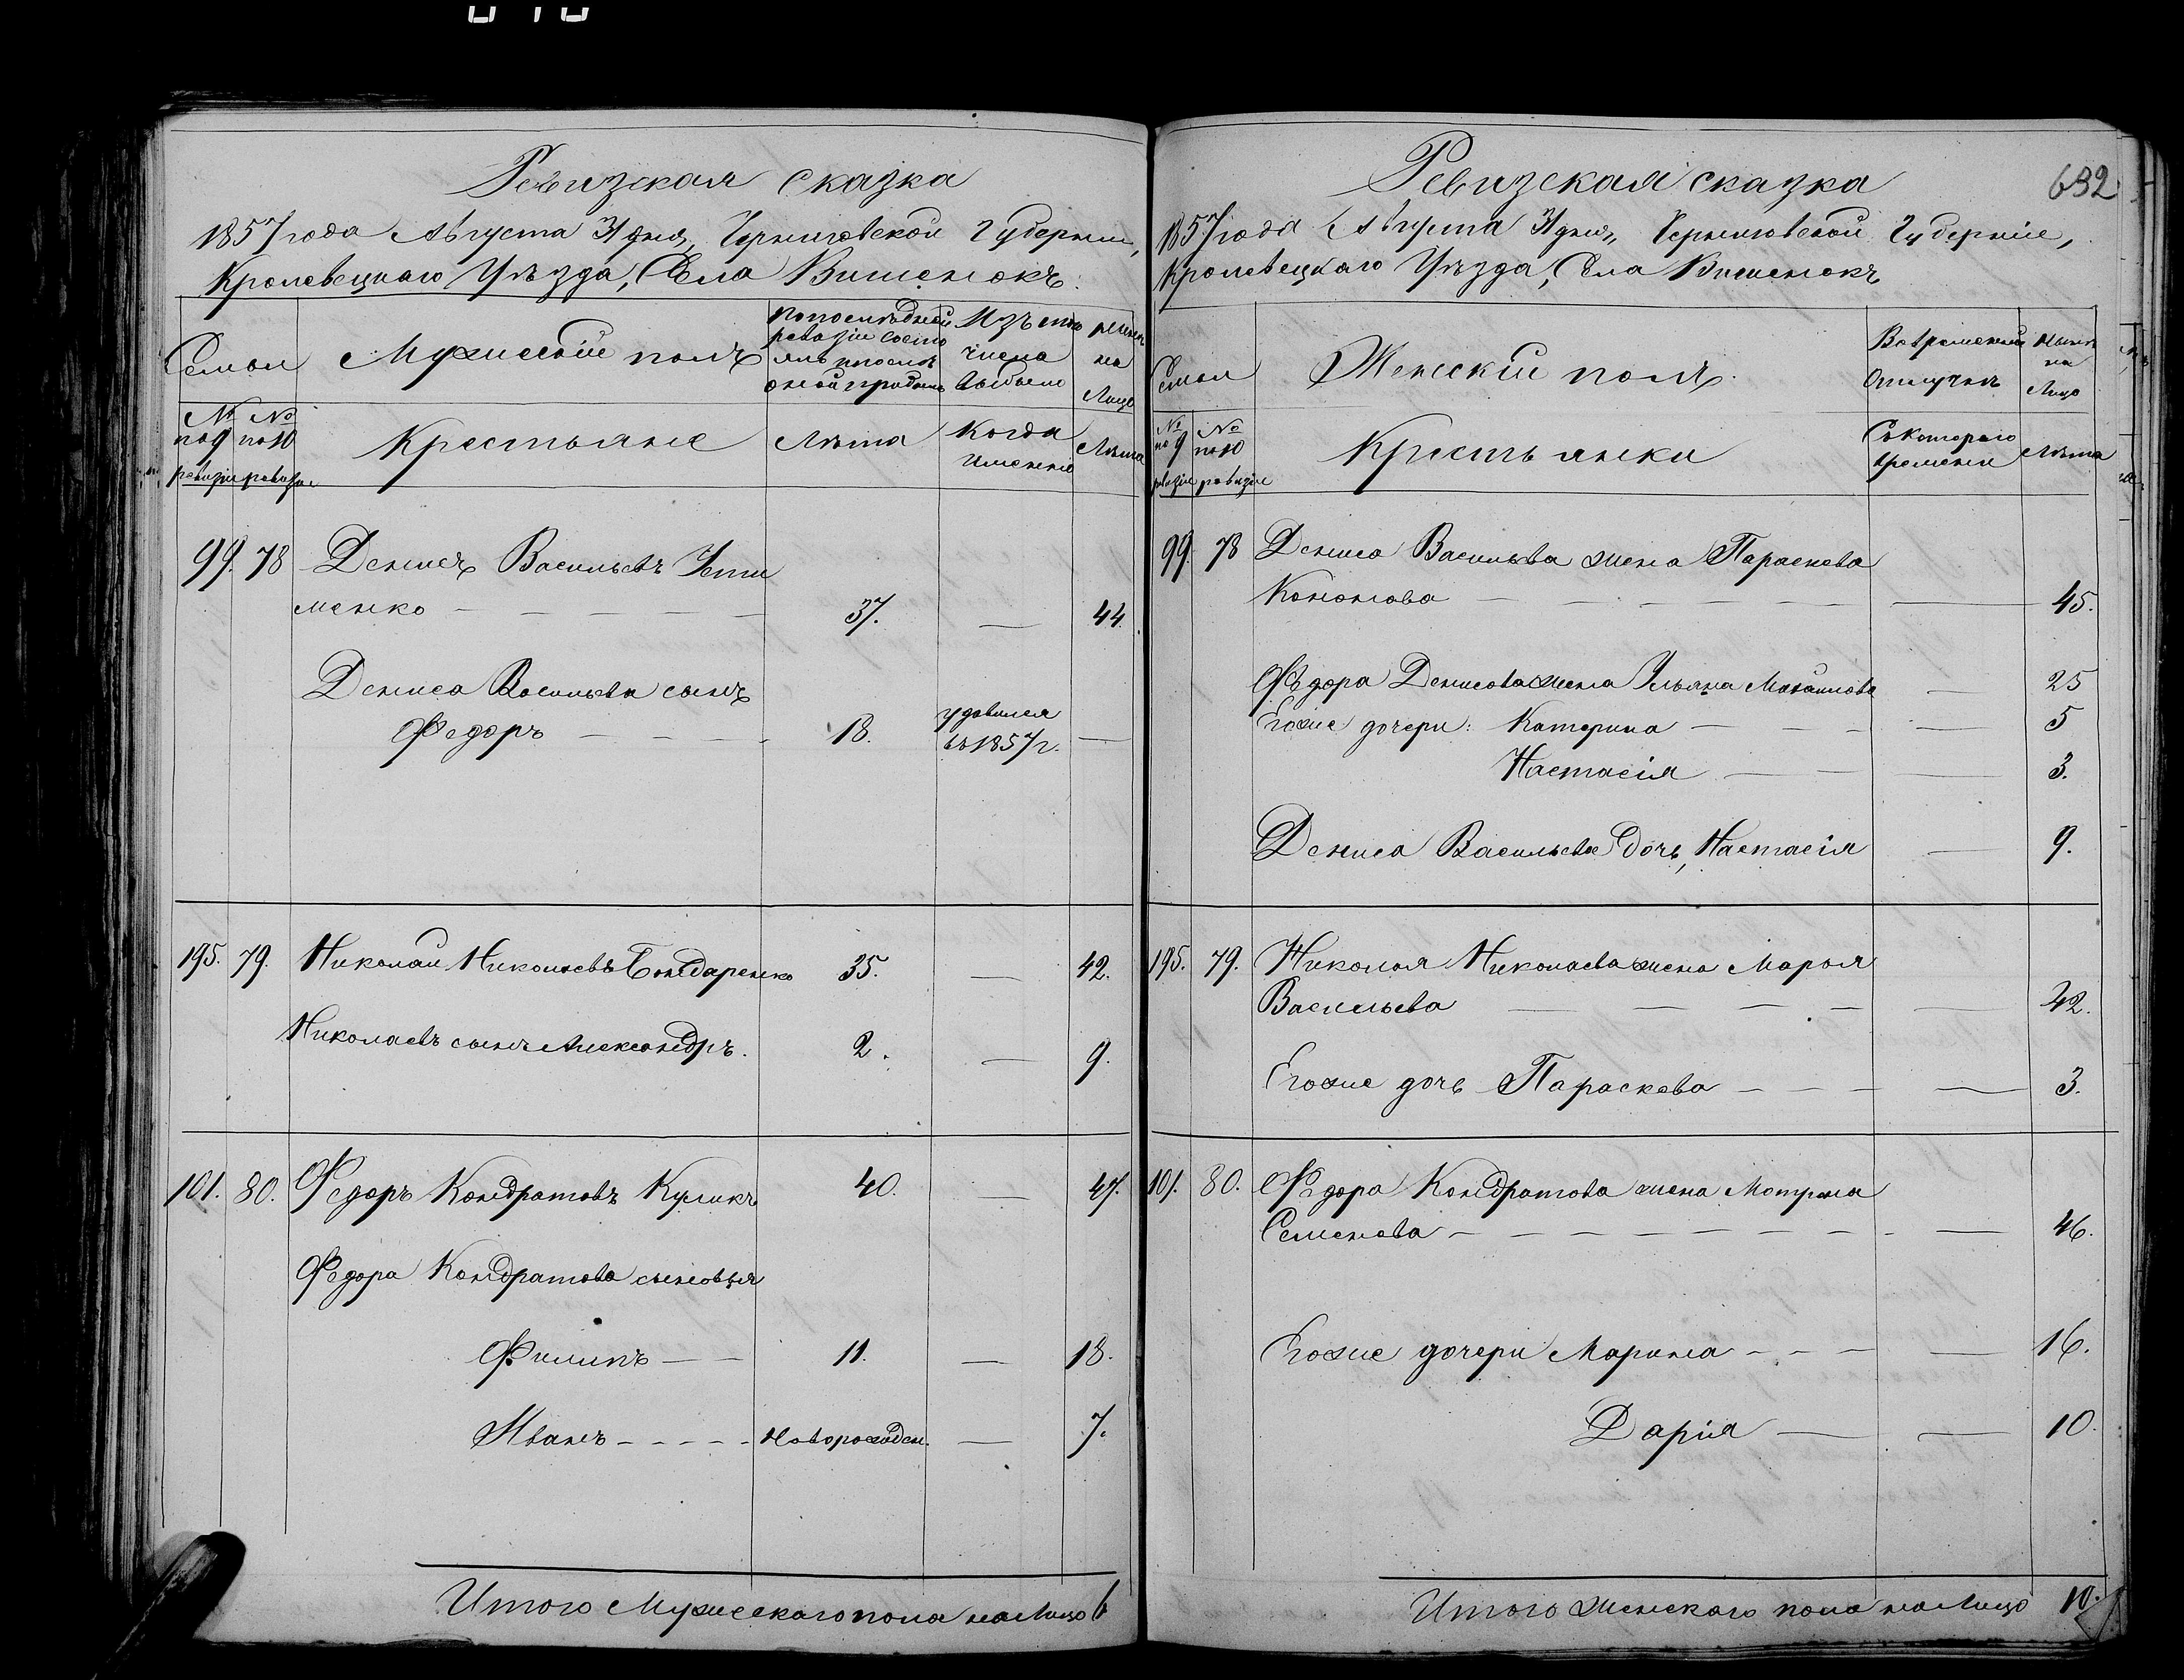 Ревизская сказка
1857 года Августа 31 дня, Черниговской Губернии,
Кролевецкаго Уѣзда, Села Вишенокъ.
Семьи
Мужескій полъ
По последней
ревизіи состо
яло и после
оной прибыло
Изъ того
числа
выбыло
ныне
на
Лицо
№ по 9 ревизіи
№ по 10 ревизіи
Крестьяне
Лѣта
Когда
именно
Лѣта
99. 78 Денисъ Васильевъ Усти
менко 37. — 44.
Дениса Васильева сынъ
Федоръ 18. удавился
въ 1857 г. —
195. 79. Николай Николаевъ Бондаренко 35. — 42.
Николаевъ сынъ Александръ. 2. — 9.
101. 80. Федоръ Кондратовъ Куликъ 40. — 47.
Федора Кондратова сыновья
Филипъ — 11. — 18.
Иванъ - - - - - Новорожден. — 7.
Итого Мужескаго пола на Лицо 6
Ревизская сказка
632
1857 года Августа 31 дня, Черниговской Губерніи,
Кролевецкаго Уѣзда, Села Вишенокъ
Семьи
Женскій полъ.
Во временной
Отлучкѣ
Ныне
на
Лицо
№ по 9 ревизіи
№ по 10 ревизіи
Крестьянки
Съ котораго
времени
Лѣта
99. 78 Дениса Васильева жена Параскева
Кононова — 45.
Федора Денисова жена Ульяна Михайлова — 25
Егоже дочери: Катерина — 5
Настасія — 3.
Дениса Васильева дочь, Настасія — 9.
195. 79. Николая Николаева жена Марья
Васильева — 42.
Егоже дочь Параскева — 3.
101. 80. Федора Кондратова жена Мотрона
Семенова — 46.
Егоже дочери Марина — 16.
Дарія — 10.
Итого Женскаго пола на Лицо 10.